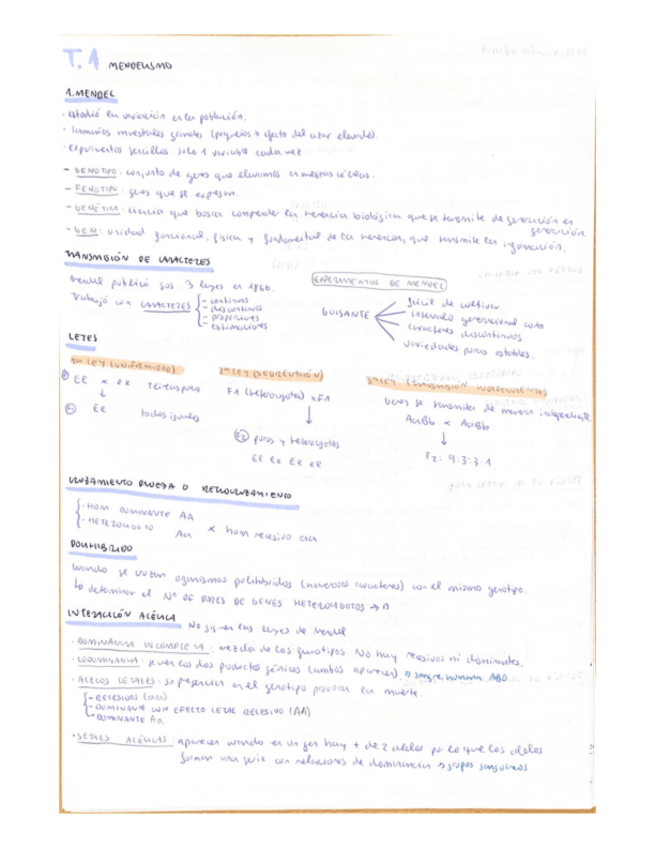 T.1 MENDELISMO
1. MENDEL
· estudió la variación en la población.
· Tamaños muestrales grandes (pequeños → efecto del azar elevado).
· Experimentos sencillos. solo 1 variable cada vez
- GENOTIPO: conjunto de genes que llevamos en nuestras células.
- FENOTIPO: genes que se expresan.
- GENÉTICA: ciencia que busca comprender la herencia biológica que se transmite de generación en generación.
- GEN: unidad funcional, física y fundamental de la herencia, que transmite la información.
TRANSMISIÓN DE CARACTERES
Mendel publicó sus 3 leyes en 1866.
Trabajó con CARACTERES
- continuos
- discontinuos
- proporciones
- estimaciones
EXPERIMENTOS DE MENDEL
GUISANTE
fácil de cultivar
intervalo generacional corto
caracteres discontinuos
variedades puras estables.
LEYES
1ª LEY (UNIFORMIDAD)
EE x RR
↓
ER todos iguales
2ª LEY (SEGREGACIÓN)
F1 (heterocigotos) x F1
↓
F2 puros y heterocigotos
EE Re ER RR
3ª LEY (TRANSMISIÓN INDEPENDIENTE)
Genes se transmiten de manera independiente
AaBb x AaBb
↓
F2: 9:3:3:1
CRUZAMIENTO PRUEBA O RETROCRUZAMIENTO
- HOM DOMINANTE AA
- HETEROCIGOTO Aa
x hom recesivo aa
POLIHIBRIDO
Cuando se cruzan organismos polihíbridos (numerosos caracteres) con el mismo genotipo.
↳ determinar el Nº DE PARES DE GENES HETEROCIGOTOS → n
INTERACCIÓN ALÉLICA No siguen las leyes de Mendel
· DOMINANCIA INCOMPLETA: mezcla de los genotipos. No hay recesivos ni dominantes.
· CODOMINANCIA: se ven los dos productos génicos (ambos aparecen) → sangre humana ABO
· ALELOS LETALES: su presencia en el genotipo provoca la muerte.
- RECESIVOS (aa)
- DOMINANTE CON EFECTO LETAL RECESIVO (AA)
- DOMINANTE Aa
· SERIES ALÉLICAS: aparecen cuando en un gen hay + de 2 alelos por lo que los alelos
forman una serie con relaciones de dominancia → grupos sanguíneos